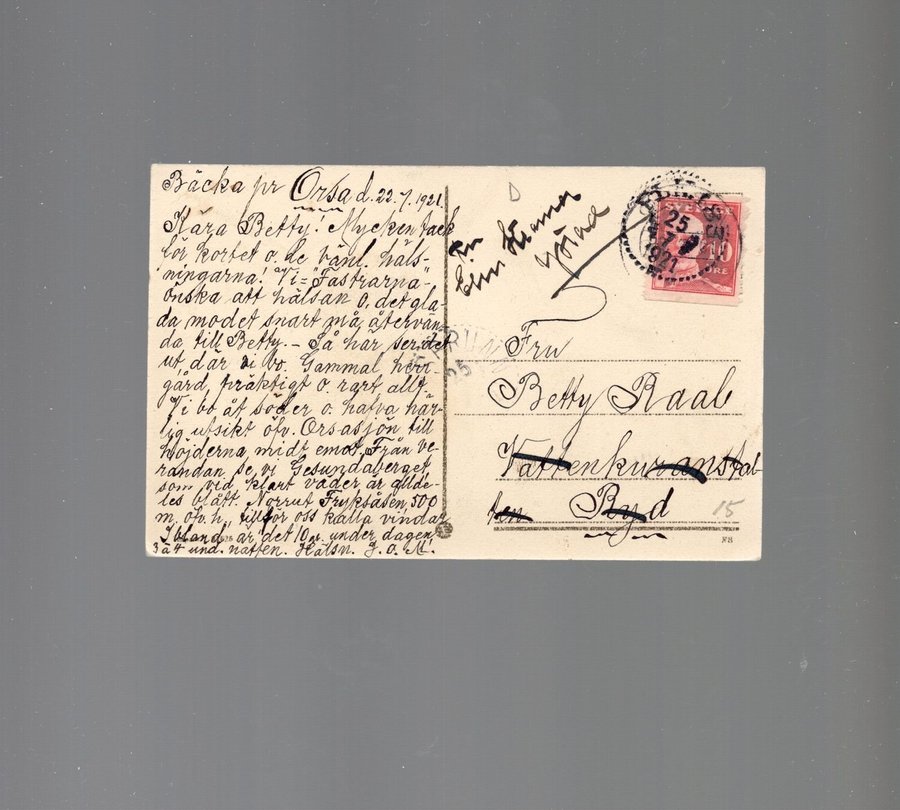 Bäcka pr Orsa d. 22.7.1921.
Kära Betty! Mycken tack
för kortet o. de vänl. häls-
ningarna! Vi = "Fastrarna",
önska att hälsan o. det gla-
da modet snart må återvän-
da till Betty. – Så här ser det
ut, där vi bo. Gammal herr-
gård, präktigt o. rart allt.
Vi bo åt söder o. hafva här-
lig utsikt öfv. Orsasjön till
höjderna midt emot. Från ve-
randan se vi Gesundaberget
som vid klart väder är allde-
les blått. Norrut Fryksåsen, 500
m. öfv. h. tillför oss kalla vindar.
Ibland är det 10 gr. under dagen,
3 à 4 und. natten. Hälsn. J. o. M.
SVERIGE
10
ÖRE
25
7
1921
25
Fru
Betty Raab
Vattenkuranstal-
ten Ryd
15